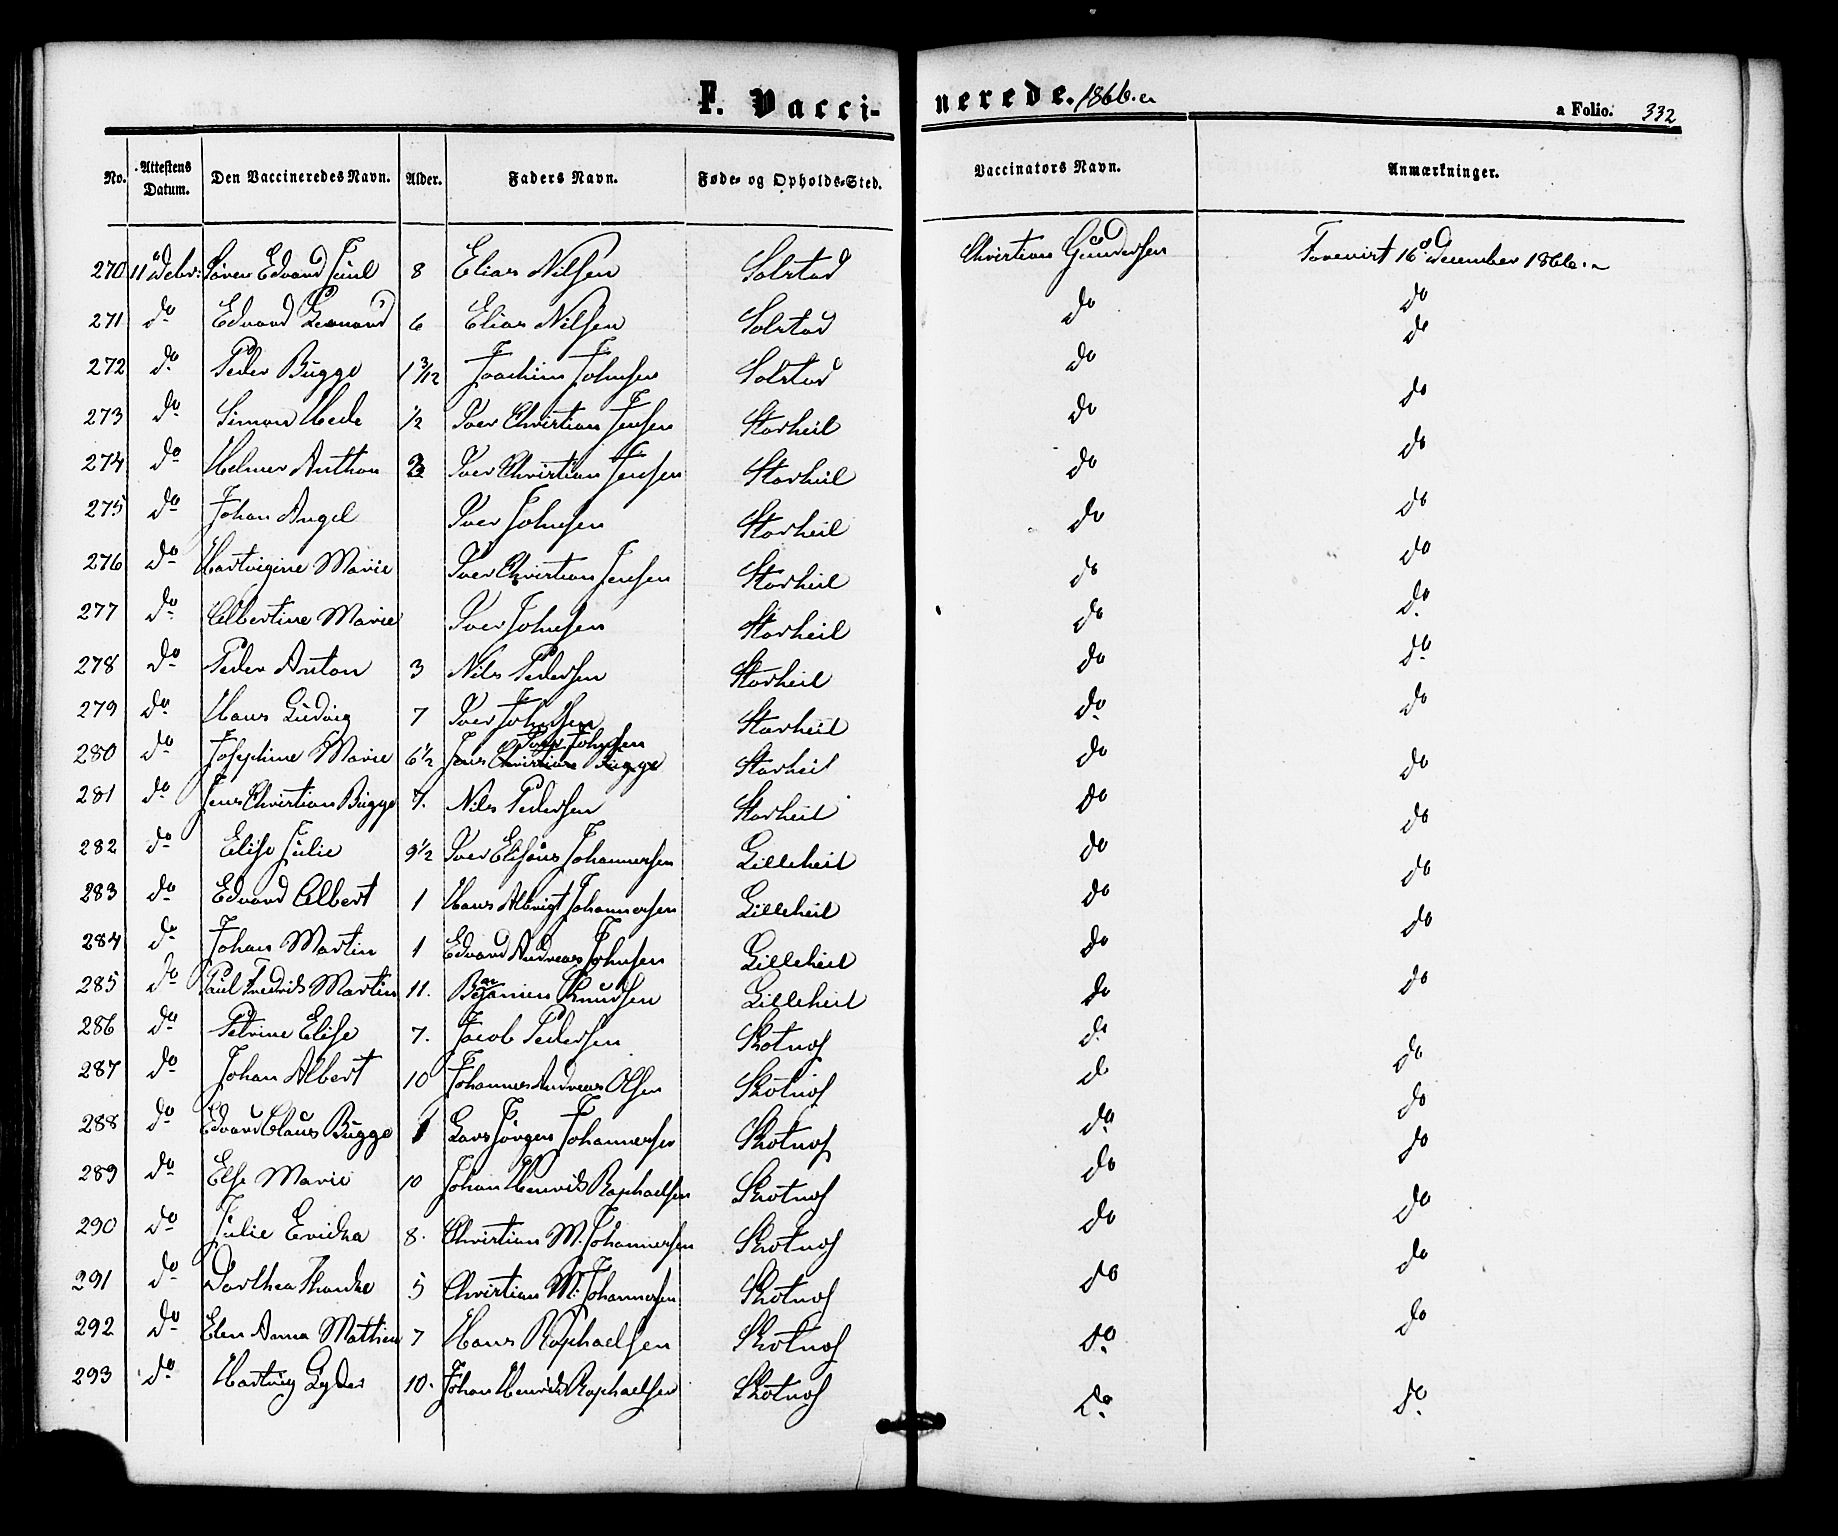 F. Vaccinerede. 1866.
a Folio. 332
No. Attestens Datum. Den Vaccineredes Navn. Alder. Faders Navn. Føde- og Opholds-Sted. Vaccinators Navn. Anmærkninger.
270 11 Søren Edvard Juul 8 Elias Nilsen Solstad Christian Gundersen 16 December 1866.
271 do Edvard Leonard 6 Elias Nilsen Solstad do do
272 do Peder Bugge 1 3/12 Joachim Johnsen Solstad do do
273 do Simon Mede 1/2 Iver Christian Jensen Storheil do do
274 do Helmer Anthon Iver Christian Jensen Storheil do do
275 do Johan Angel Iver Johnsen Storheil do do
276 do Hartvigine Marie Iver Christian Jensen Storheil do do
277 do Albertine Marie Iver Johnsen Storheil do do
278 do Peder Anton 3 Nils Pedersen Storheil do do
279 do Hans Ludvig 7 Iver Johnsen Storheil do do
280 do Josephine Marie 6 1/2 Jens Christian Bugge Iver Johnsen Storheil do do
281 do Jens Christian Bugge 7. Nils Pedersen Storheil do do
282 do Elise Julie 9 1/2 Iver Elisæus Johannesen Lilleheil do do
283 do Edvard Albert 1 Hans Albrigt Johannesen Lilleheil do do
284 do Johan Martin 1 Edvard Andreas Johnsen Lilleheil do do
285 do Paul Fredrik Martin 11. Knudsen Lilleheil do do
286 do Petrine Elise 7. Jacob Pedersen Skotnæs do do
287 do Johan Albert 10 Johannes Andreas Olsen Skotnæs do do
288 do Edvard Claus Bugge Lars Jørgen Johannesen Skotnæs do do
289 do Else Marie 10 Johan Henrik Raphaelsen Skotnæs do do
290 do Julie Ericka 8. Christian M. Johannesen Skotnæs do do
291 do Dorthea Thanke 5 Christian M. Johannesen Skotnæs do do
292 do Elen Anna Mathea 7 Hans Raphaelsen Skotnæs do do
293 do Hartvig Lyder 10. Johan Henrik Raphaelsen Skotnæs do do